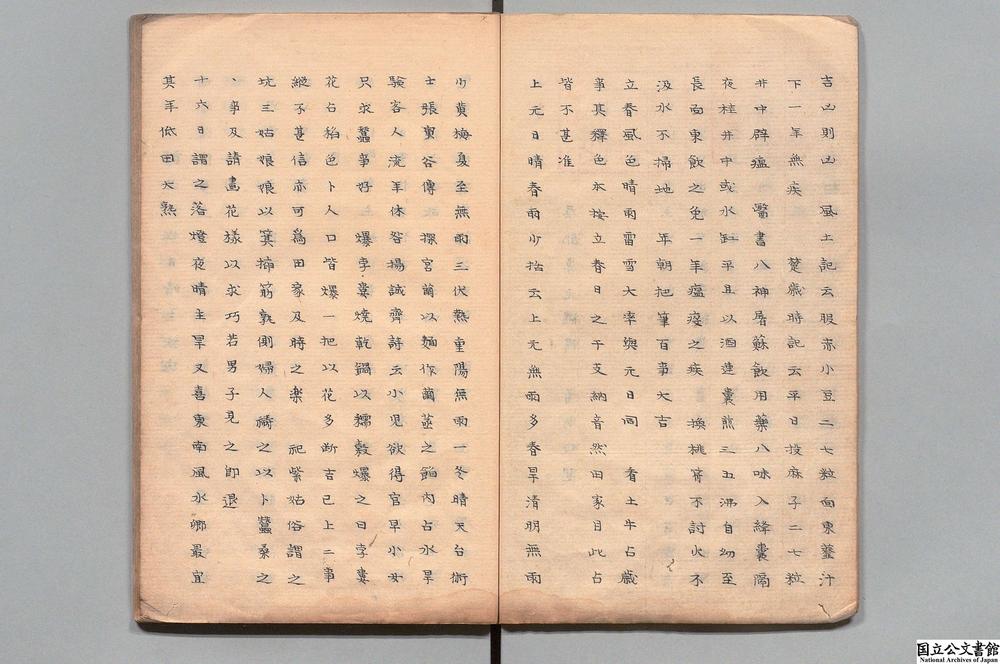 吉凶則凶 風土記云服赤小豆二七粒面東虀汁
下一年無疾 楚歲時記云平旦投麻子二七粒
井中辟瘟 醫書八神屠蘇飲用藥八味入絳囊隔
夜柱井中或水缸平旦以酒連囊煎三五沸自幼至
長面東飲之免一年瘟疫之疾 換桃符不討火不
汲水不掃地 年朝把筆百事大吉
立春風色晴雨雷雪大率與元日同 看土牛占歲
事其釋色亦按立春日之干支納音然田家目此占
皆不甚准
上元日晴春雨少括云上元無雨多春旱清明無雨
少黄梅夏至無雨三伏熱重陽無雨一冬晴天台術
士張鬼谷傳 探宮繭以麵作繭蒸之餡内占水旱
驗客人流年休咎揚誠齊詩云小兒欲得官早小女
只求蠶事好 爆孛婁燒乾鍋以糯穀爆之曰孛婁
花占稻色 卜人口皆爆一把以花多断吉已上二事
縱不甚信亦可為田家及時之楽 祀紫姑俗謂之
坑三姑娘娘以箕插筯兩側婦人禱之以卜蠶桑之
事及請畫花樣以求巧若男子見之即退
十六日謂之落燈夜晴主旱又喜東南風水郷最宜
其年低田大熟
国立公文書館
National Archives of Japan